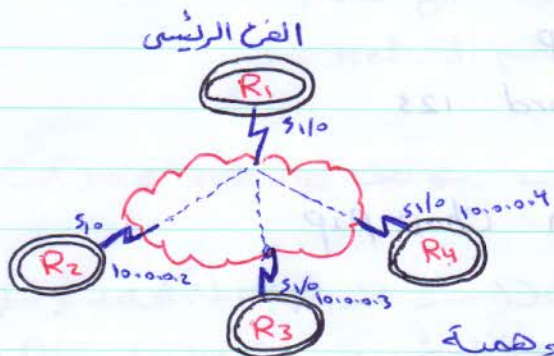 الفرع الرئيسي
R1
S1/0
S1/0
R2
10.0.0.2
S1/0
10.0.0.3
R3
S1/0
10.0.0.4
R4
وهمية